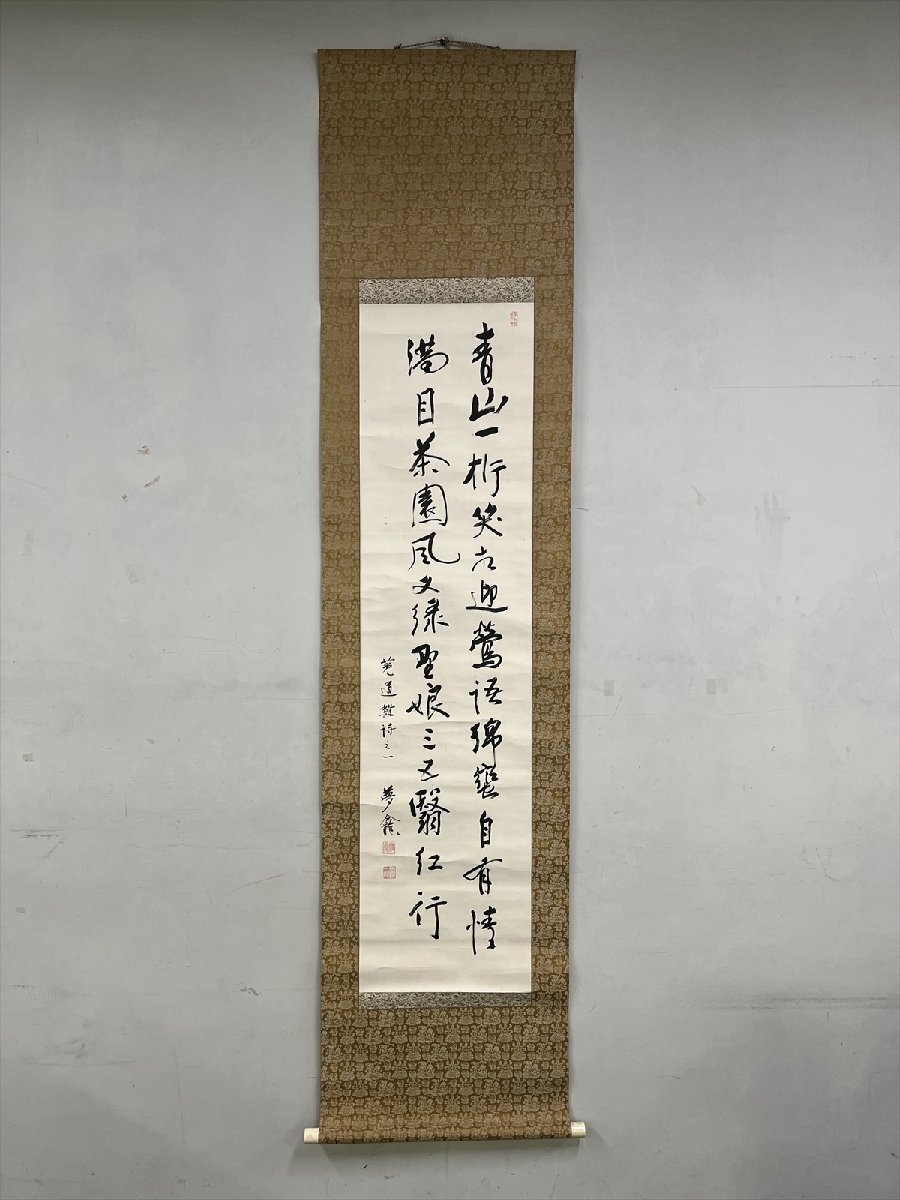 青山一桁笑相迎鶯語綿蠻自有情
満目茶園風文緑聖娘三五翳紅行
菟道雜詩之一
夢